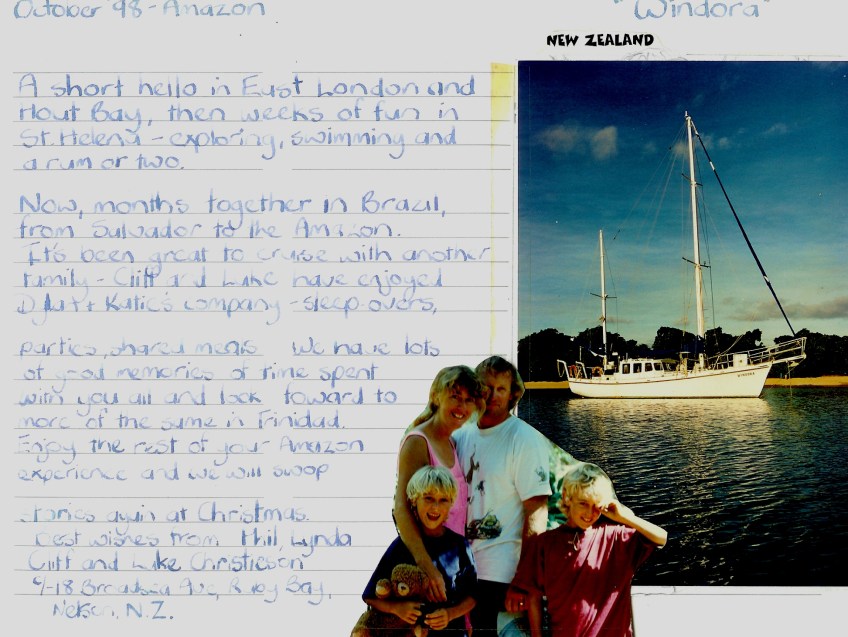 October '98 - Amazon
"Windora"
NEW ZEALAND
A short hello in East London and
Hout Bay, then weeks of fun in
St. Helena - exploring, swimming and
a rum or two.
Now, months together in Brazil,
from Salvador to the Amazon.
It's been great to cruise with another
family - Cliff and Luke have enjoyed
Katie's company - sleep-overs,
parties, shared meals We have lots
of good memories of time spent
with you all and look foward to
more of the same in Trinidad.
Enjoy the rest of your Amazon
experience and we will swop
stories again at Christmas.
Best wishes from Phil, Lynda
Cliff and Luke Christieson
Ave, Ruby Bay,
Nelson, N.Z.